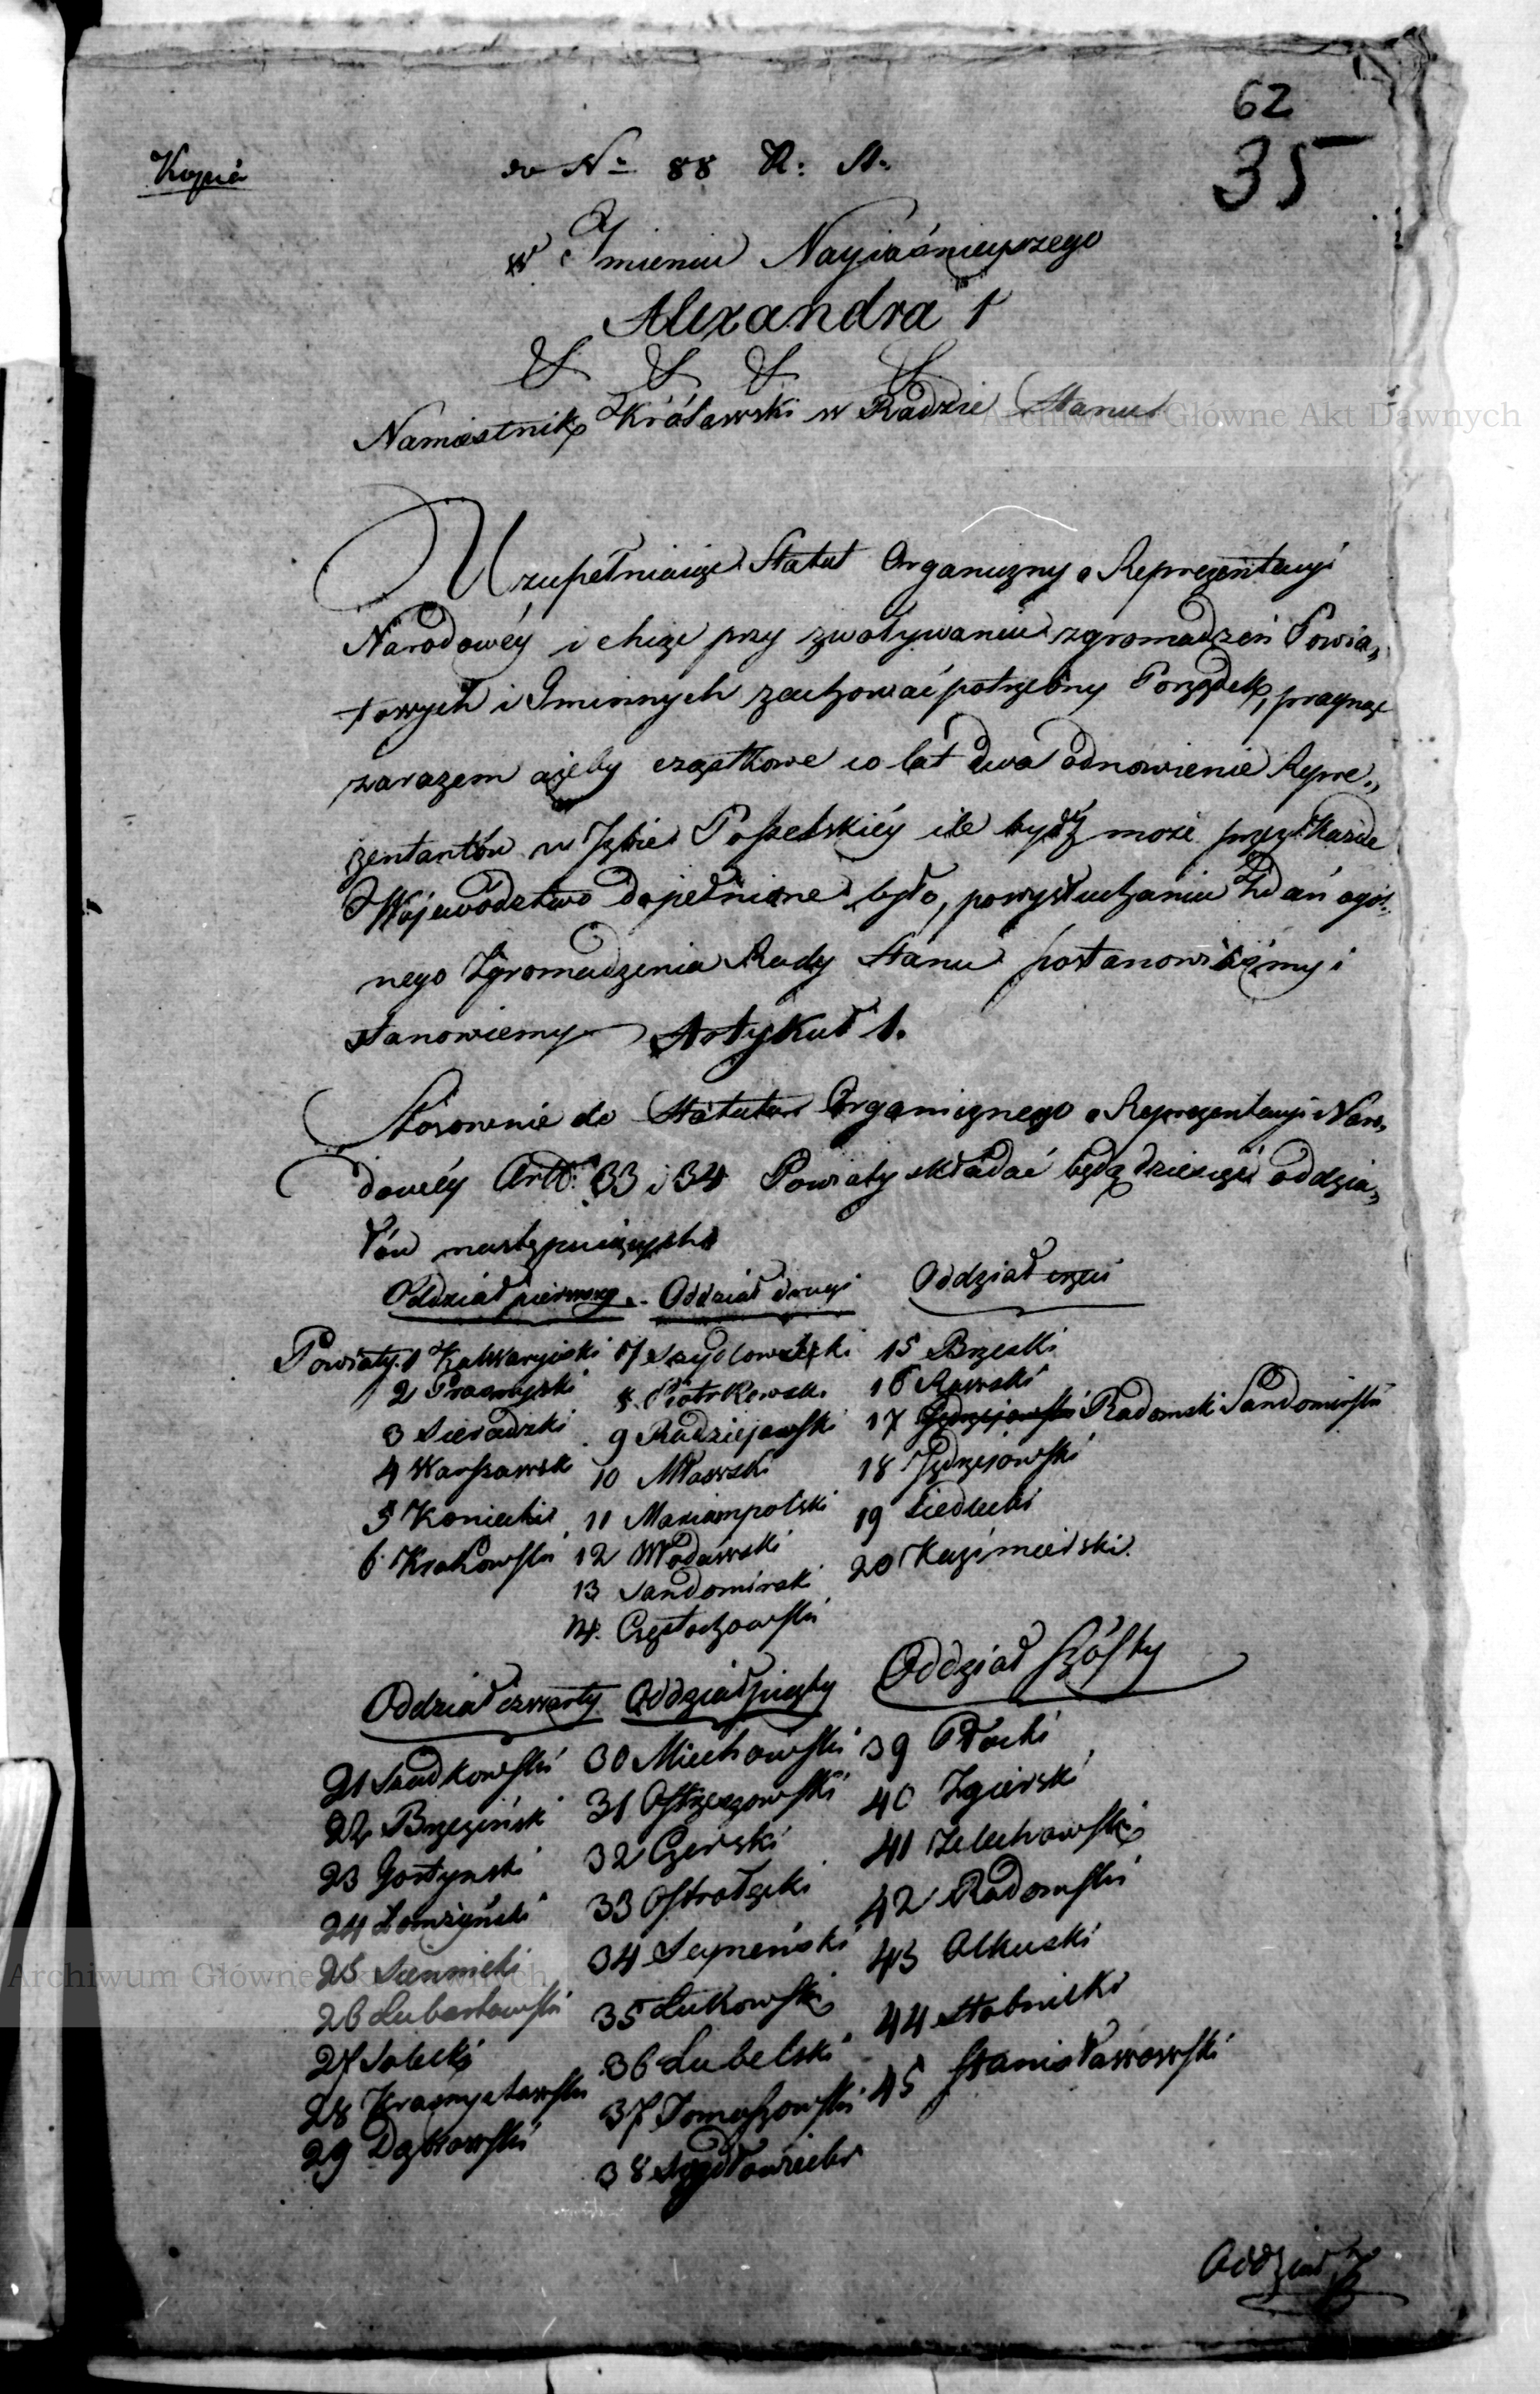 62
35
Kopia
do No 88 R: S.
w Imieniu Nayiaśnieyszego
Alexandra 1
Namiestnik Królewski w Radzie Stanu
Archiwum Główne Akt Dawnych
Uzupełniaiąc Statut Organiczny o Reprezentacyi
Narodowéy i chcąc przy zwoływaniu zgromadzeń Powia„
towych i Gminnych zachować potrzebny Porządek, pragnąc
zarazem ażeby cząstkowe co lat dwa odnowienie Repre„
zentantów w Izbie Poselskiéy ile bydź może przez każde
Województwo dopełnione było, po wysłuchaniu Zdań ogól„
nego Zgromadzenia Rady Stanu postanowiliśmy i
stanowiemy Artykuł 1.
Stosownie do Statutu Organicznego o Reprezentacyi Naro„
dowéy Artt: 33 i 34 Powiaty składać będą dziesięć oddzia„
łów następuiących
Oddział pierwszy. Oddział drugi Oddział trzeci
Powiaty. 1 Kalwaryiski 7 Szydłowiecki 15 Brzeski
2 Prasnyski 8. Piotrkowski 16 Rawski
3 Sieradzki 9 Radziejowski 17 Jędrzejowski Radomski Sandomirski
4 Warszawski 10 Mławski 18 Jędrzejowski
5 Koniecki 11 Mariampolski 19 Siedlecki
6 Krakowski 12 Włodawski 20 Kazimierski.
13 Sandomirski
14. Częstochowski
Oddział czwarty Oddział piąty Oddział szósty
21 Szadkowski 30 Miechowski 39 Płocki
22 Brzeziński 31 Ostrzeszowski 40 Zgierski
23 Gostynski 32 Czerski 41 Zelechowski
24 Łomżyński 33 Ostrołęcki 42 Radomski
25 Siennicki 34 Seyneński 43 Olkuski
Archiwum Główne Akt Dawnych
26 Lubartowski 35 Łukowski 44 Stobnicki
27 Solecki 36 Lubelski 45 Stanisławowski
28 Krasnystawski 37 Tomaszowski
29 Dąbrowski 38 Szydłowiecki
Oddział 7